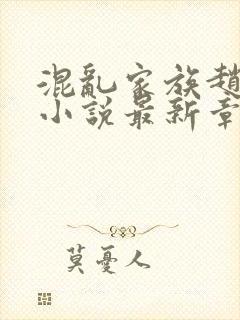 混亂家族趙
小說最新章
莫憂人